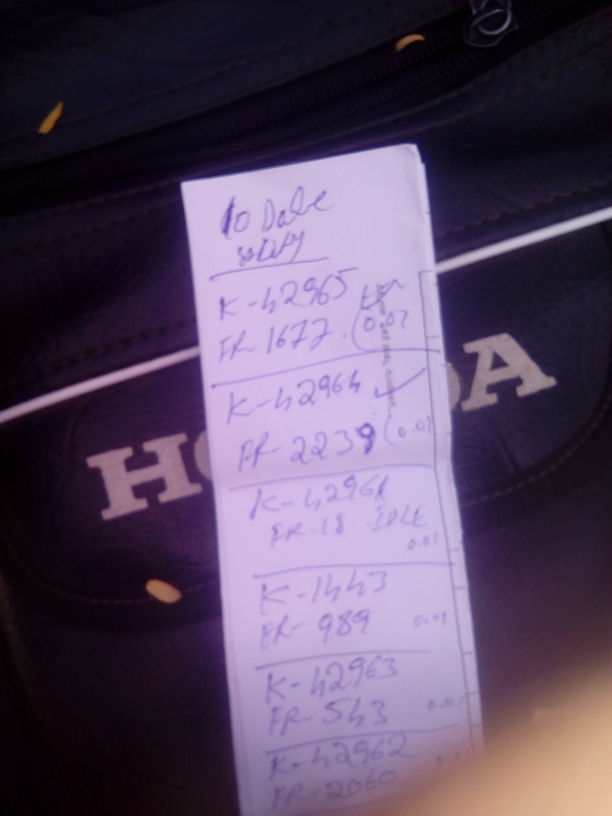 10 Dabe
K-42965
FR-1677 (0.0?
K-42964
FR-2239 (0.0?
K-42961
FR-18 IDLE
0.01
K-1443
FR-989 0.01
K-42963
FR-543 0.0
K-42962
FR-2060
HONDA